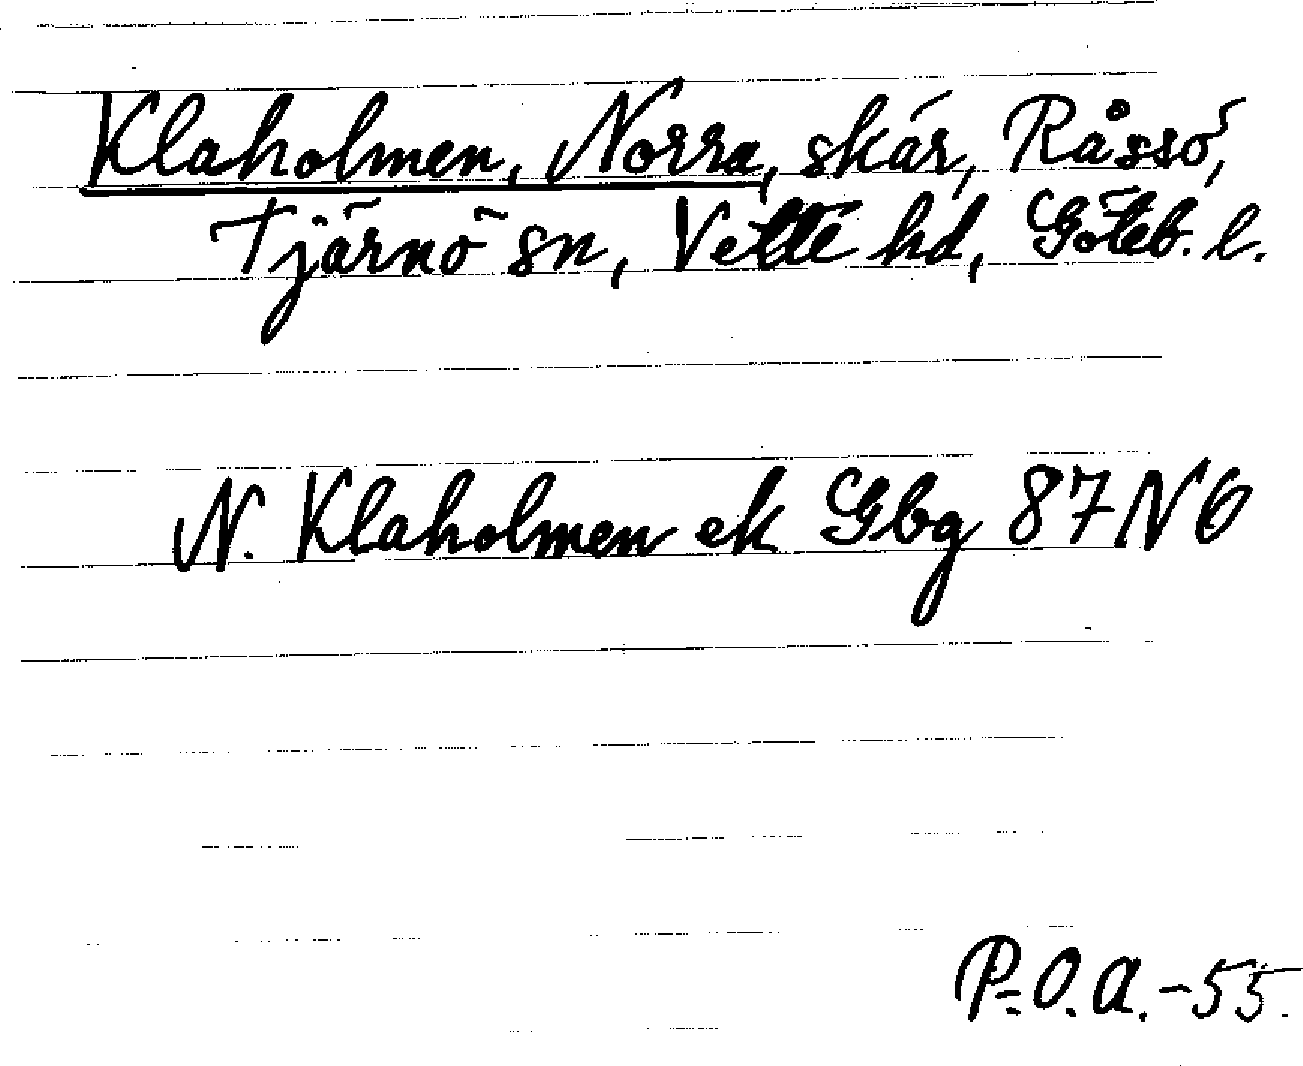 Klaholmen, Norra, skär, Råssö,
Tjärnö sn, Vette hd, Göteb. l.
N. Klaholmen ek Gbg 87 NO
P.-O.A.-55.